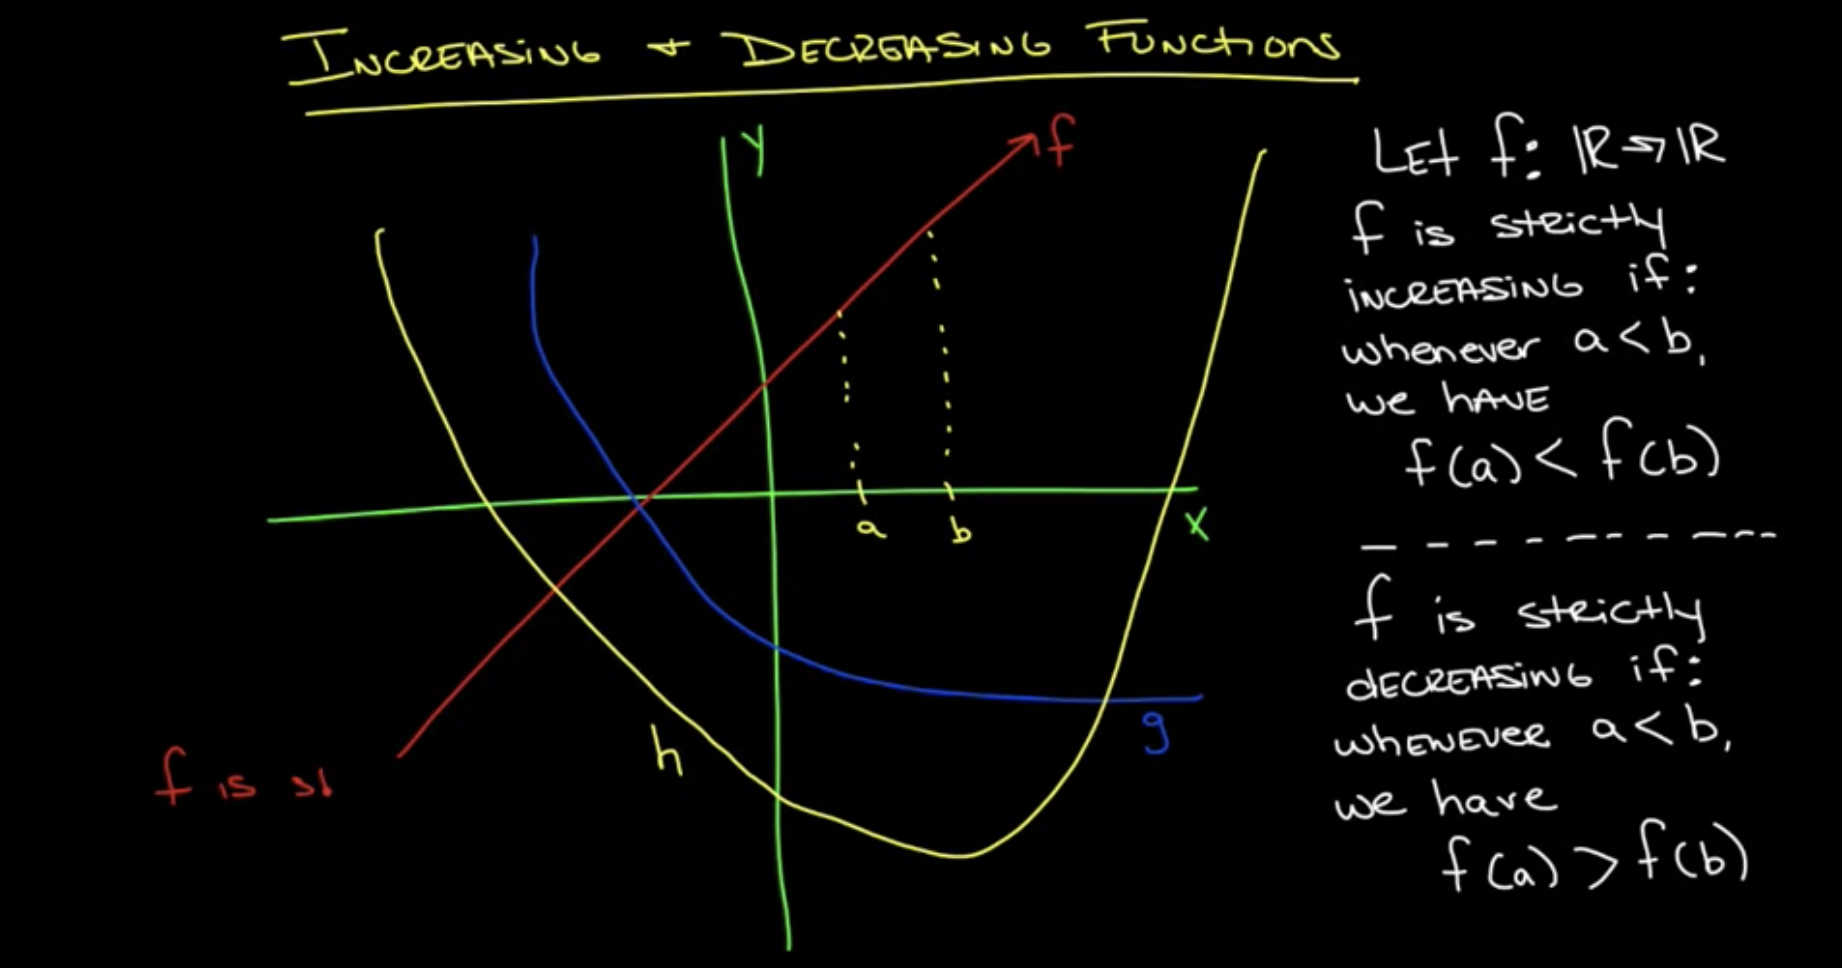 INCREASING & DECREASING FUNCTIONS
y
f
x
a
b
g
h
f is st
LET f: ℝ→ℝ
f is strictly
INCREASING if:
whenever a < b,
we HAVE
f(a) < f(b)
f is strictly
dECREASING if:
WHENEVER a < b,
we have
f(a) > f(b)